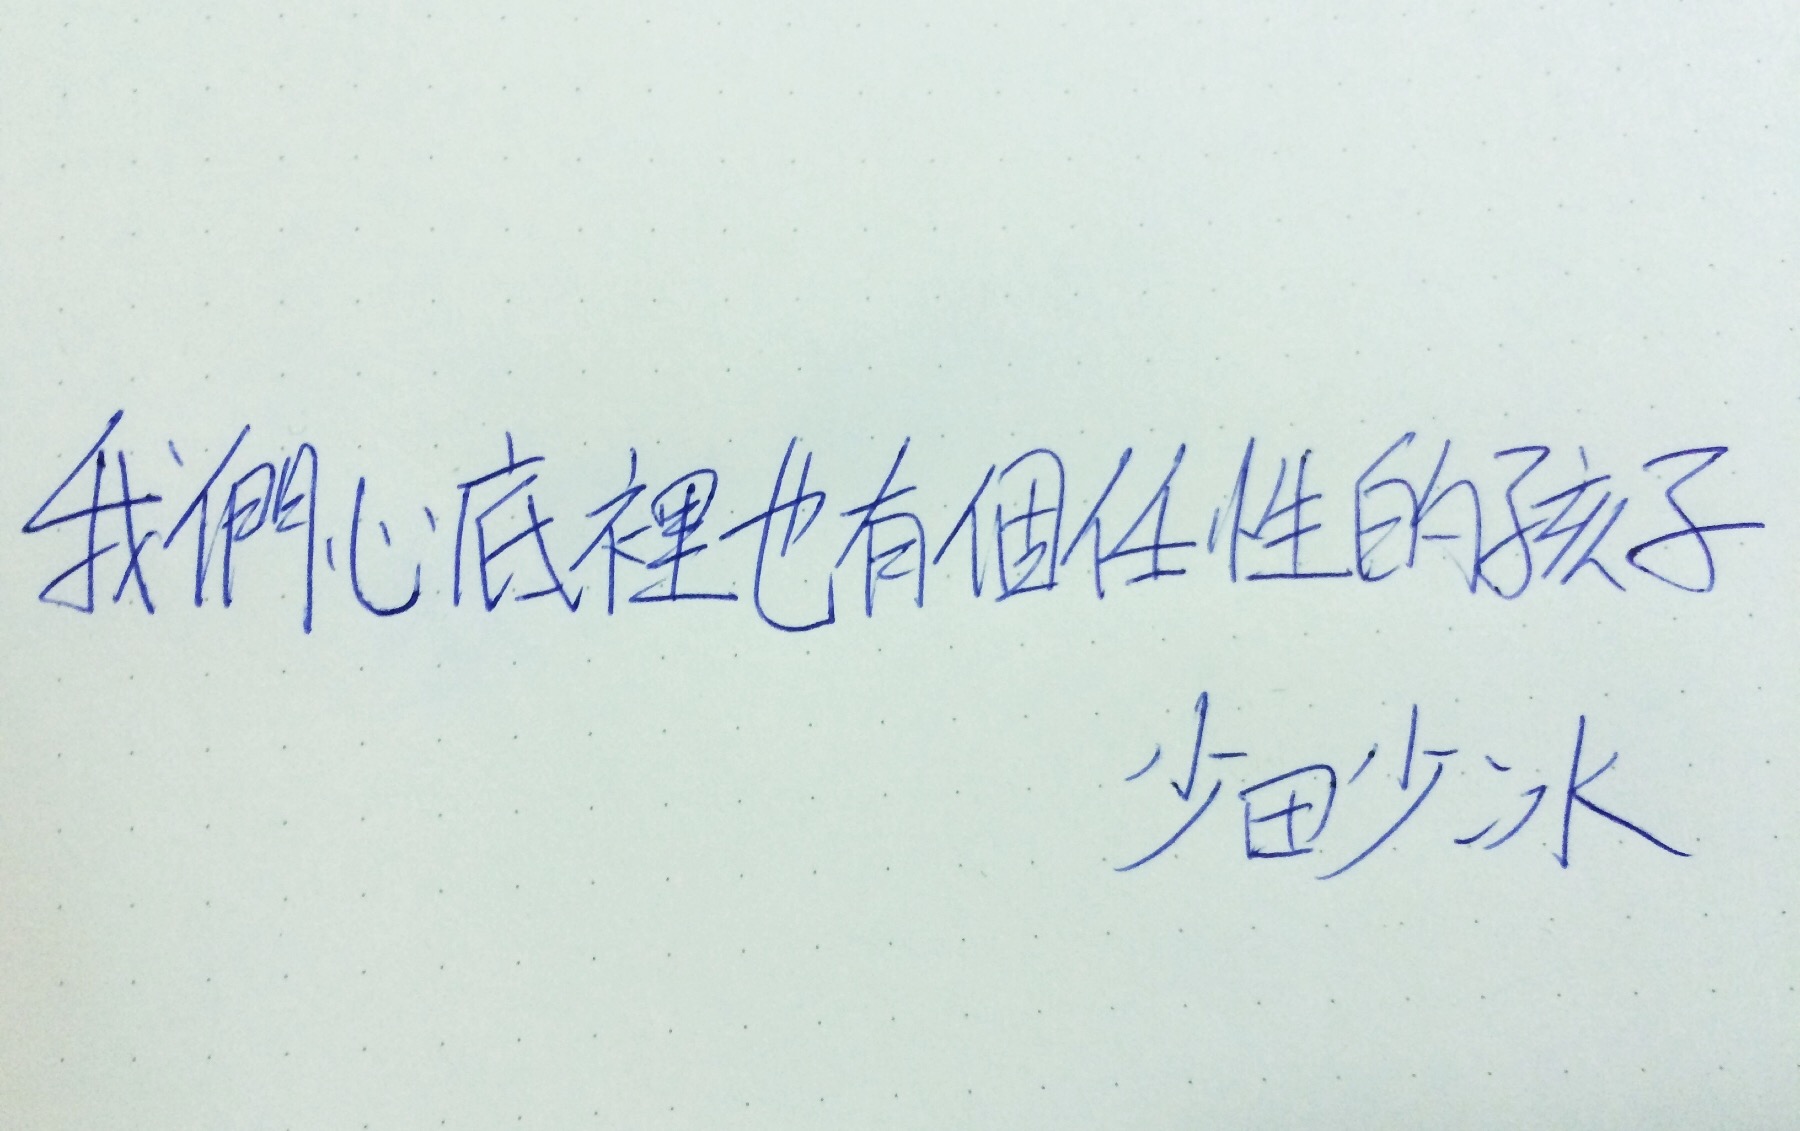 我們心底裡也有個任性的孩子
少田少冰